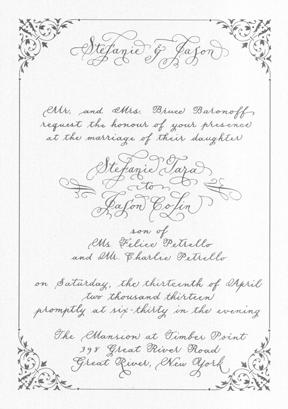 Stefanie & Jason
Mr. and Mrs. Bruce Baronoff
request the honour of your presence
at the marriage of their daughter
Stefanie Tara
to
Jason Colin
son of
Ms. Felice Petrello
and Mr. Charlie Petrello
on Saturday, the thirteenth of April
two thousand thirteen
promptly at six-thirty in the evening
The Mansion at Timber Point
398 Great River Road
Great River, New York